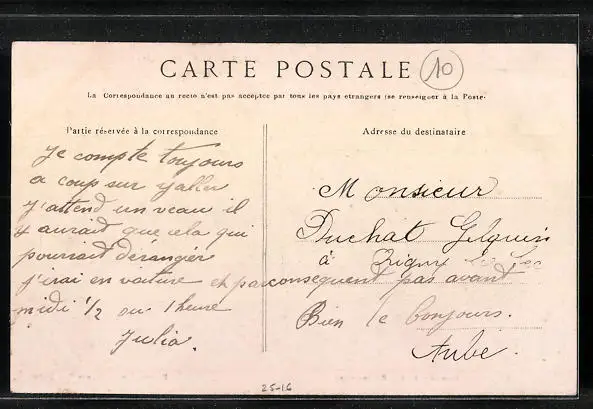 CARTE POSTALE
10
La Correspondance au recto n'est pas acceptée par tous les pays étrangers (se renseigner à la Poste.
Partie réservée à la correspondance
je compte toujours
a coup sur y aller
j'attend un veau il
y aurait que cela qui
pourrait déranger
j'irai en voiture et par consequent pas avant
midi 1/2 ou 1 heure
Julia.
Adresse du destinataire
Monsieur
Duchat Gelquin
à
Bien le bonjours.
Aube.
25-16